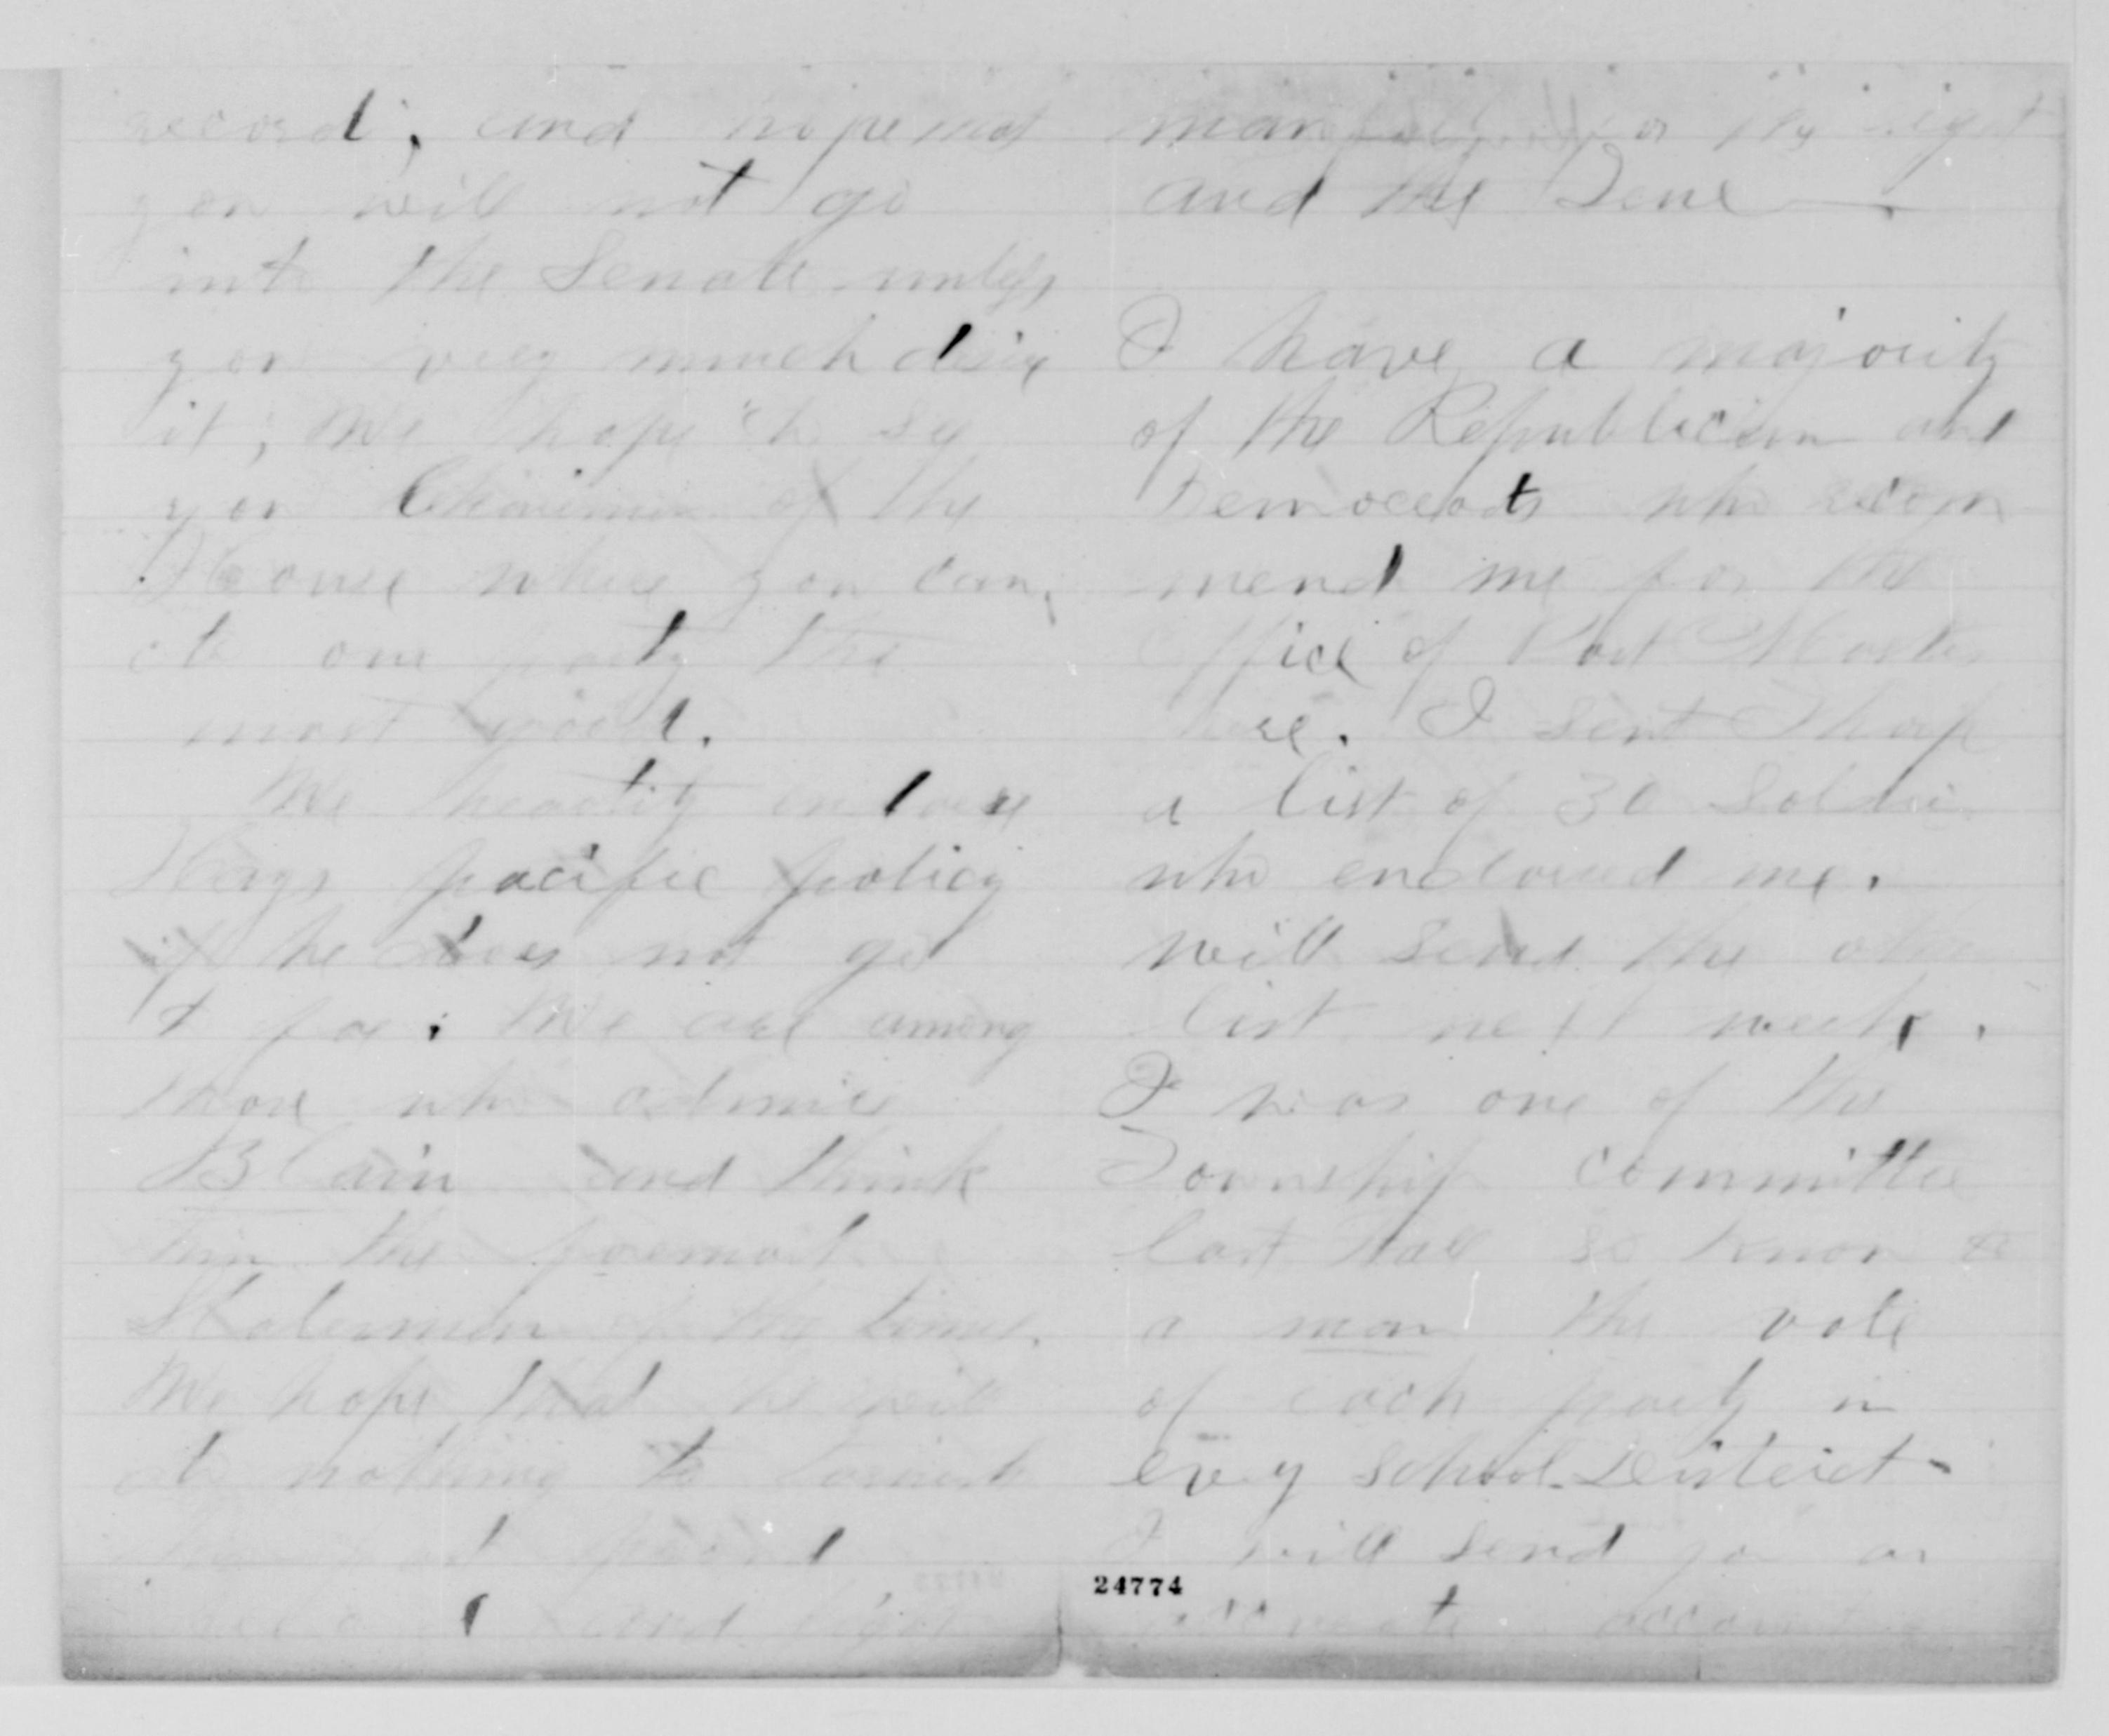 record; and
you will not go
into the Senate unless
you very much desire
it; We hope to see
you Chairman of the
House where you can
do our party the
most good.
We heartily endorse
Hays pacific policy
if he does not go
to far. We are among
those who admire
Blain and think
him the foremost
Statesman of the times.
We hope that he will
do nothing to tarnish
his past
and
manfully for the right
and the True.
I have a majority
of the Republican and
Democrats who recom
mend me for the
office of Post Master
here. I sent
a list of 30
who endorsed me.
will send the other
list next week.
I was one of the
Township committee
last Fall so know to
a man the vote
of each party in
evey school District
I will send you an
account
24774